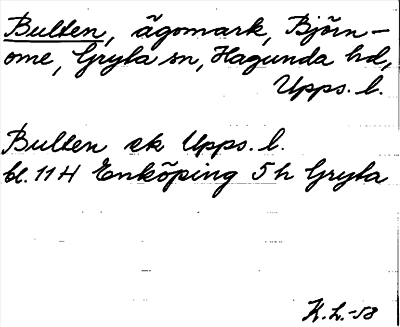 Bulten, ägomark, Björn-
ome, Gryta sn, Hagunda hd,
Upps. l.
Bulten ek Upps. l.
bl. 11 H Enköping 5 h Gryta
K.L.-58